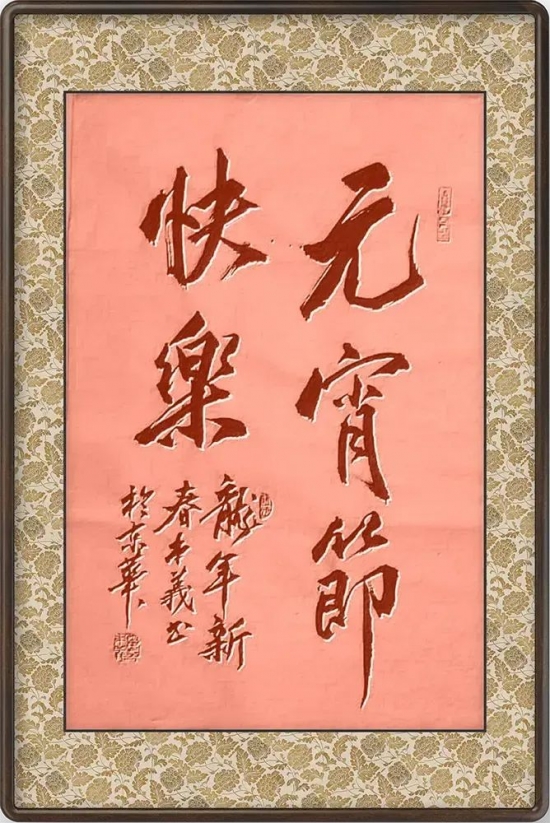 元宵節
快樂
龍年新
春義书
於京華